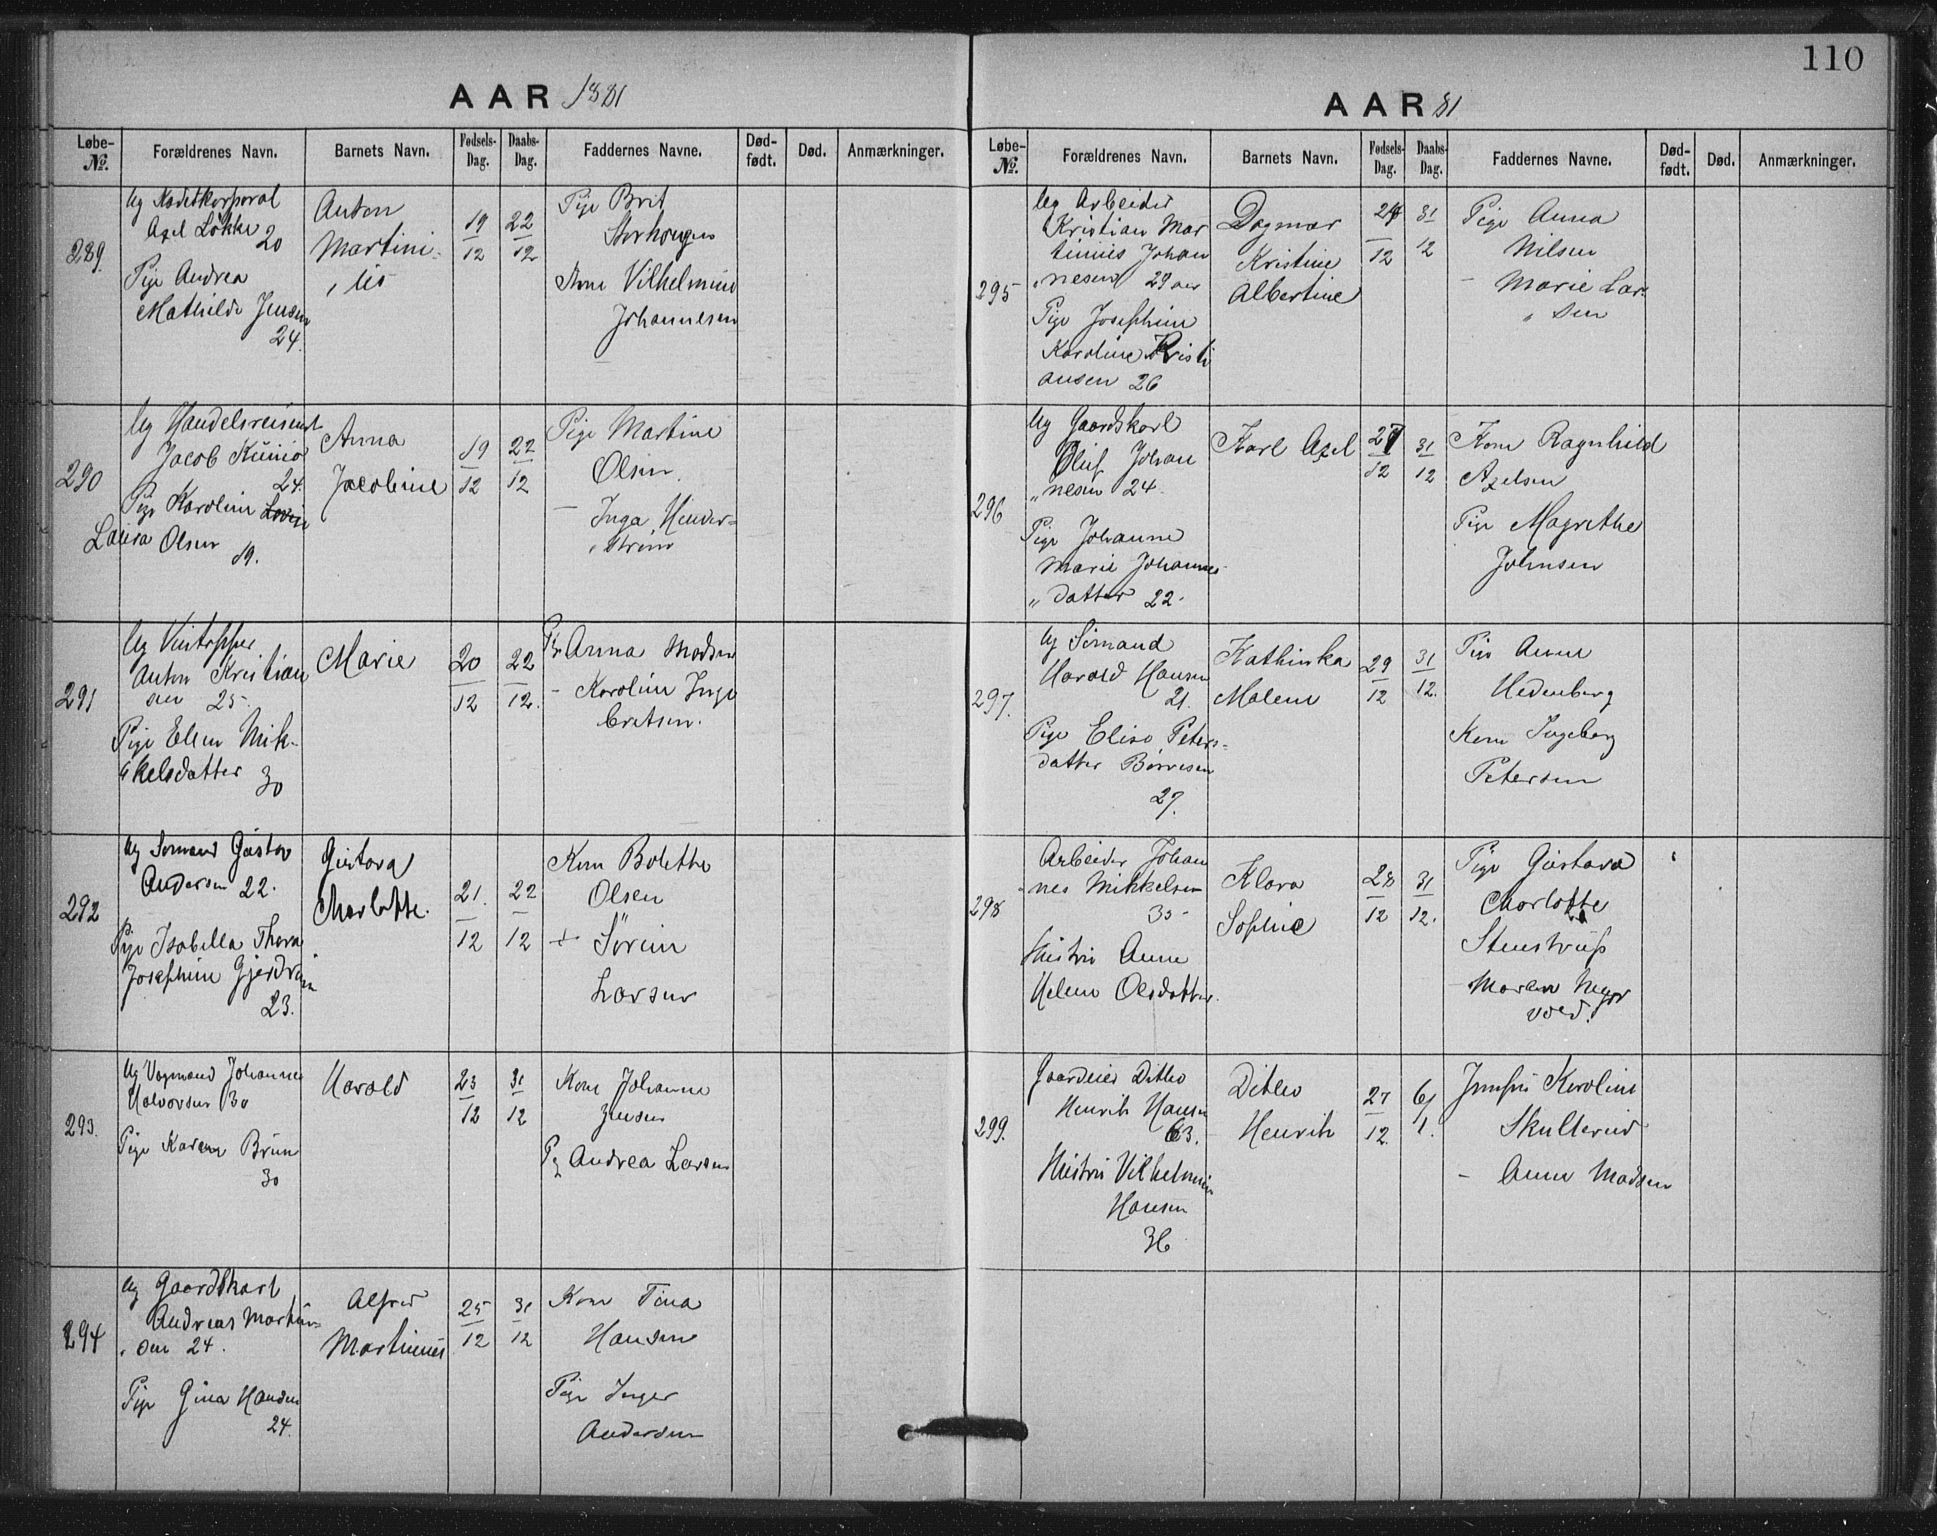 AAR 1881
Løbe-№. Forældrenes Navn. Barnets Navn. Fødsels-Dag. Daabs-Dag. Faddernes Navne. Død-født. Død. Anmærkninger.
289.
Ug Kadetkorporal
Axel Løkke 20
Pige Andrea
Mathilde Jensen
24.
Anton
Martini-
„ us
19/12
22/12
Pige Brit
Storhougen
Kone Vilhelmine
Johannesen
290
Ug Handelsreisende
Jacob Kunio
24.
Pige Karoline
Laura Olsen
19.
Anna
Jacobine
19/12
22/12
Pige Martine
Olsen
— Inga Hender-
„ strøm
291
Ug Vintapper
Anton Kristian
sen 25.
Pige Elen Mik-
„ kelsdatter
30
Marie
20/12
22/12.
Pig Anna Madsen
- Karoline Inge
bretsen.
292
Ug Sømand Gustav
Andersen 22.
Pige Isabella Thora
Josephine Gjerdrum
23.
Gustava
Charlotte.
21./12
22/12
Kone Bolette
Olsen
+ Sørine
Larsen
293.
Ug Vognmand Johannes
Halvorsen 30
Pige Karen Brun
30
Harald
23/12
31/12
Kone Johanne
Jensen
Pg Andrea Larsen
294
Ug Gaardskarl
Andreas Martin-
„ sen 24.
Pige Gina Hansen
24.
Alfred
Martinius
25/12
31/12
Kone Tina
Hansen
Pige Inger
Andersen
110
AAR 81
Løbe-№. Forældrenes Navn. Barnets Navn. Fødsels-Dag. Daabs-Dag. Faddernes Navne. Død-født. Død. Anmærkninger.
295
Ug Arbeider
Kristian Mar
tinius Johan
„ nesen 29 aar
Pige Josephine
Karoline Kristi
ansen 26
Dagmar
Kristine
Albertine
/12
31/12
Pige Anna
Nilsen
— Marie Lar-
„ sen
296
Ug Gaardskarl
Oluf Johan
„ nesen 24.
Pige Johanne
Marie Johannes-
„ datter 22.
Karl Axel
27/12
31/12
Kone Ragnhild
Axelsen
Pige Magrethe
Johnsen
297.
Ug Sømand
Harald Hansen
21.
Pige Elise Peters-
datter Børresen
27.
Kathinka
Malene
29/12
31/12.
Pige Anne
Hedenberg
Kone Ingeborg
Petersen
298
Arbeider Johan
„ nes Mikkelsen
35-
Hustru Anne
Helene Olsdatter.
Klara
Sophie
28/12
31/12.
Pige Gustava
Charlotte
Stenstrup
- Maren
vold.
299.
Gaardeier Ditlev
Henrik Hansen
63.
Hustru Vilhelmine
Hansen
36
Ditlev
Henrik
27/12.
6/1.
Jomfru Karoline
Skulterud
— Anne Madsen